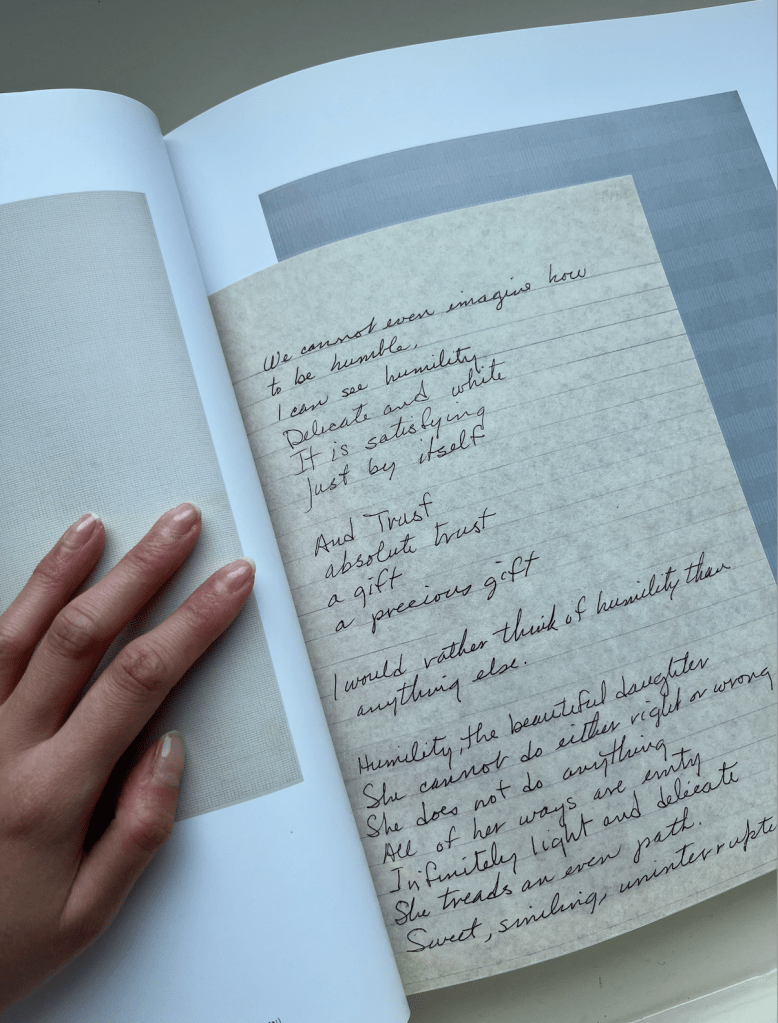 We cannot even imagine how
to be humble.
I can see humility
Delicate and white
It is satisfying
Just by itself
And Trust
absolute trust
a gift
a precious gift
I would rather think of humility than
anything else.
Humility, the beautiful daughter
She cannot do either right or wrong
She does not do anything
All of her ways are emty
Infinitely light and delicate
She treads an even path.
Sweet, smiling, uninterrupte